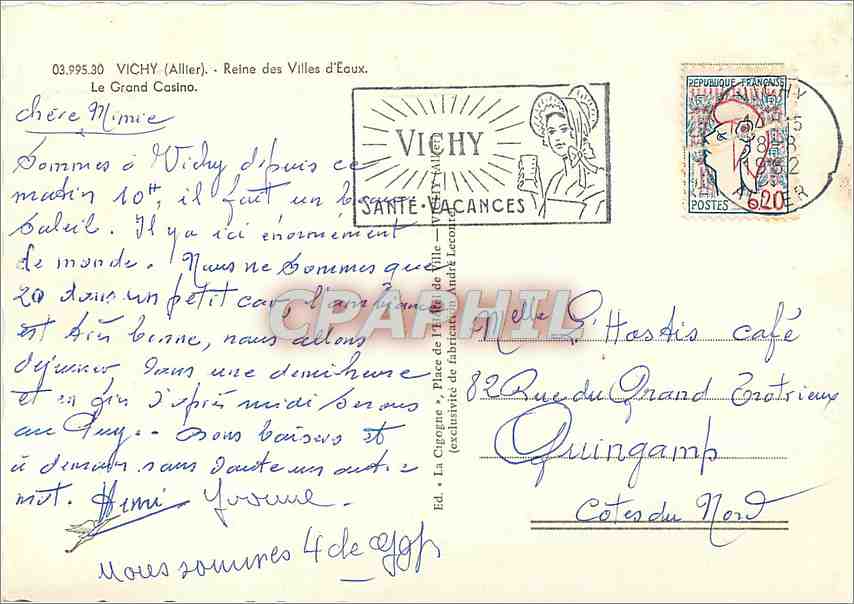 03.995.30 VICHY (Allier). - Reine des Villes d'Eaux.
Le Grand Casino.
chère Mimie
Sommes à Vichy depuis ce
matin 10H, il fait un beau
Soleil. Il y a ici énormément
de monde. Nous ne sommes que
20 dans un petit car, l'ambiance
est très bonne, nous allons
déjeuner dans une demi heure
et en fin d'après midi serons
au Puy. - bons baisers et
à demain sans doute un autre
mot. Henri Yvonne.
Nous sommes 4 de
VICHY
SANTÉ - VACANCES
REPUBLIQUE FRANÇAISE
POSTES 0,20
VICHY
ALLIER
Ed. « La Cigogne », Place de l'Hôtel de Ville — VICHY (Allier)
(exclusivité de fabrication André Leconte)
CPAPHIL
Melle L'Hostis café
82 Rue du Grand Trotrieux
Guingamp
Côtes du Nord